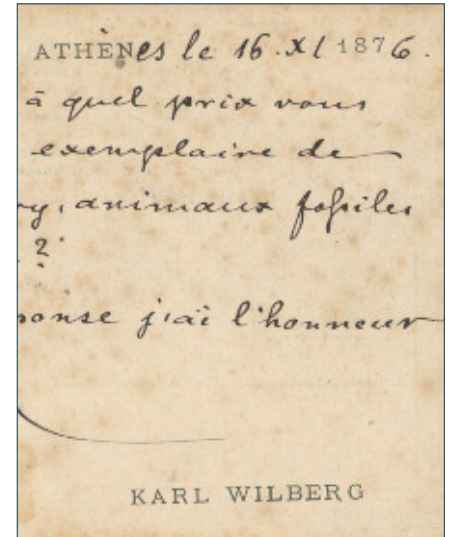 ATHÈNes le 16. XI 1876.
à quel prix vous
exemplaire de
ry, animaux fossiles
?
ponse j'ai l'honneur
KARL WILBERG